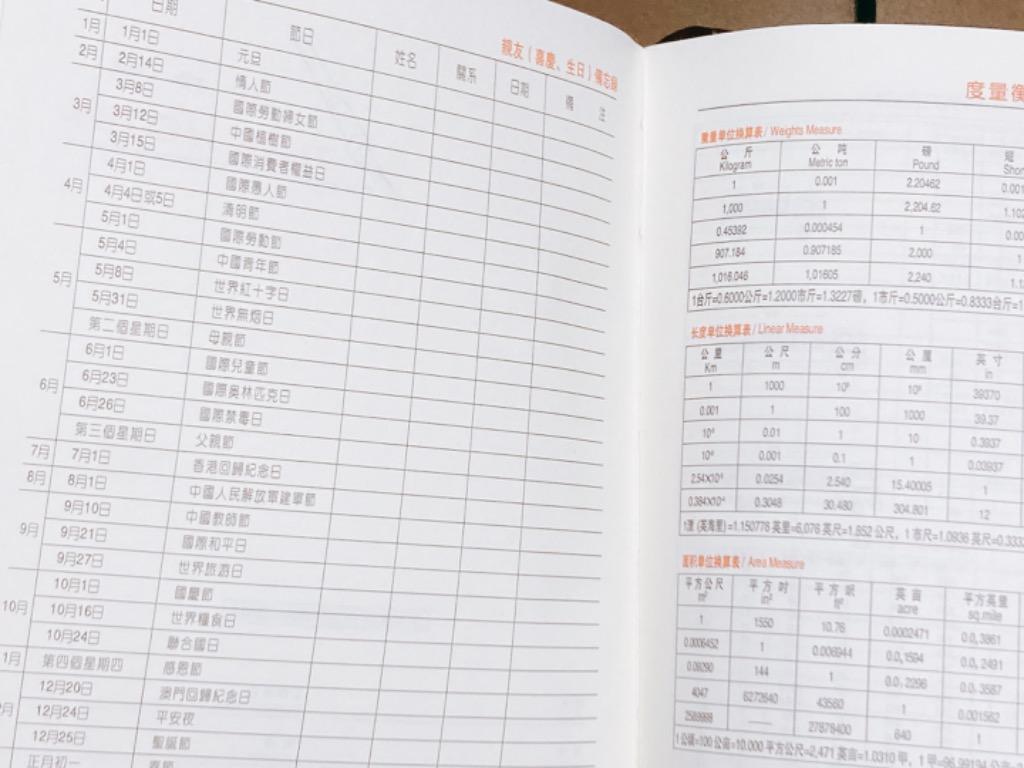 親友（喜慶、生日）備忘錄
日期 節日 姓名 關系 日期 備 注
1月 1月1日 元旦
2月 2月14日 情人節
3月 3月8日 國際勞動婦女節
3月12日 中國植樹節
3月15日 國際消費者權益日
4月 4月1日 國際愚人節
4月4日或5日 清明節
5月 5月1日 國際勞動節
5月4日 中國青年節
5月8日 世界紅十字日
5月31日 世界無烟日
第二個星期日 母親節
6月 6月1日 國際兒童節
6月23日 國際奧林匹克日
6月26日 國際禁毒日
第三個星期日 父親節
7月 7月1日 香港回歸紀念日
8月 8月1日 中國人民解放軍建軍節
9月 9月10日 中國教師節
9月21日 國際和平日
9月27日 世界旅游日
10月 10月1日 國慶節
10月16日 世界糧食日
10月24日 聯合國日
1月 第四個星期四 感恩節
月 12月20日 澳門回歸紀念日
12月24日 平安夜
12月25日 聖誕節
正月初一 春節
度量衡
重量单位换算表 / Weights Measure
公 斤 公 吨 磅 短
Kilogram Metric ton Pound Shor
1 0.001 2.20462 0.001
1,000 1 2,204.62 1.102
0.45392 0.000454 1 0.00
907.184 0.907185 2,000 1
1,016.046 1,01605 2,240 1.1
1台斤=0.6000公斤=1.2000市斤=1.3227磅，1市斤=0.5000公斤=0.8333台斤=1
长度单位换算表 / Linear Measure
公 里 公 尺 公 分 公 厘 英 寸
Km m cm mm in
1 1000 39370
0.001 1 100 1000 39.37
0.01 1 10 0.3937
0.001 0.1 1 0.03937
0.0254 2.540 15.40005 1
0.3048 30.480 304.801 12
=1.150778 英里=6,076 英尺=1,852 公尺，1 市尺=1.0936 英尺=0.333
面积单位换算表 / Area Measure
平方公尺 平 方 吋 平 方 呎 英 亩 平方英里
m² in² ft² acre sq.mile
1 1550 10.76 0.0002471 0.0₅3861
0.0006452 1 0.006944
0.09290 144 1
4047 6272640 43560 1 0.001562
27878400 640 1
1公頃=100 公亩=10,000 平方公尺=2,471 英亩=1.0310 甲，1 甲=96.99194 公亩